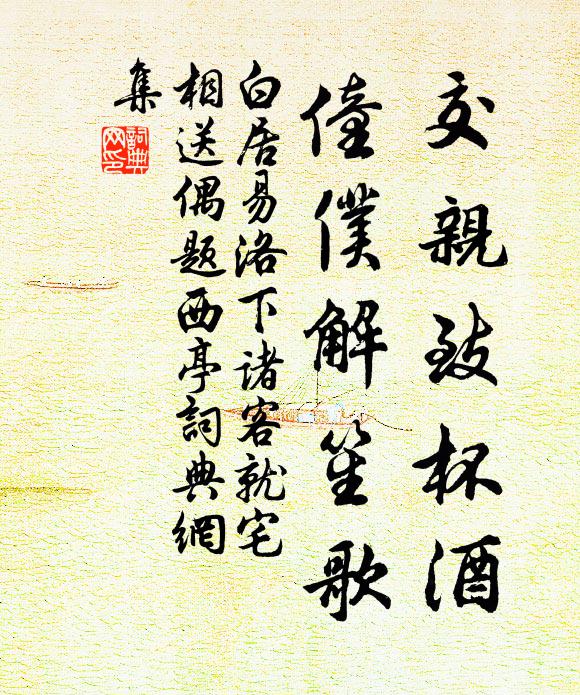 交親致杯酒
僮僕解笙歌
白居易洛下諸客就宅
相送偶題西亭詞典網
集
詞典網印